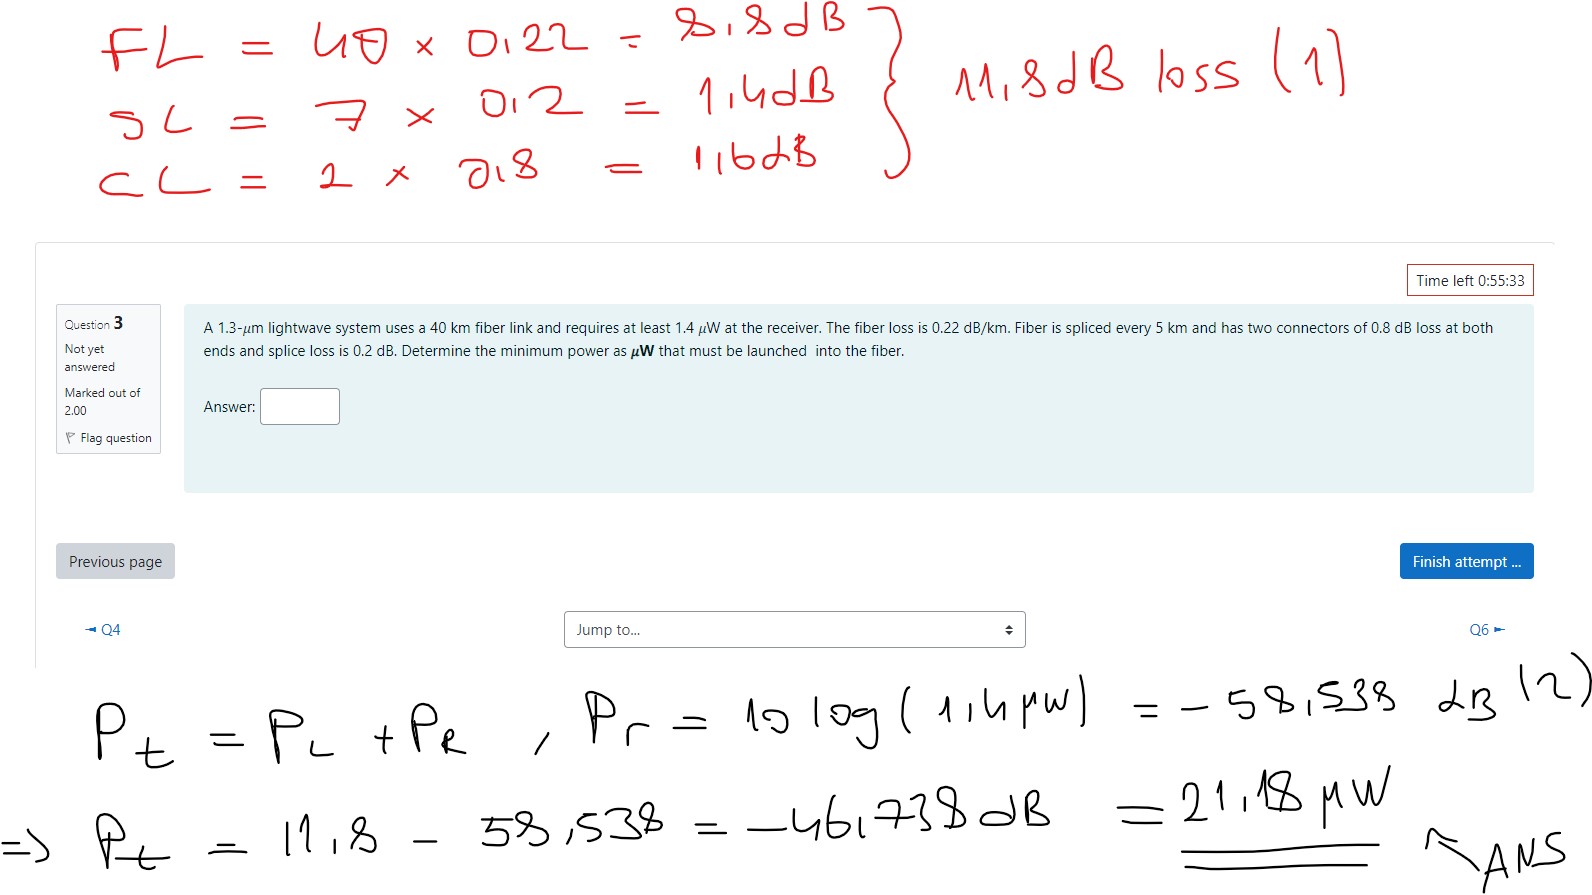 FL = 40 × 0,22 = 8,8dB
SL = 7 × 0,2 = 1,4dB
CL = 2 × 0,8 = 1,6dB
11,8dB loss (1)
Time left 0:55:33
Question 3
Not yet
answered
Marked out of
2.00
Flag question
A 1.3-μm lightwave system uses a 40 km fiber link and requires at least 1.4 μW at the receiver. The fiber loss is 0.22 dB/km. Fiber is spliced every 5 km and has two connectors of 0.8 dB loss at both
ends and splice loss is 0.2 dB. Determine the minimum power as μW that must be launched into the fiber.
Answer:
Previous page
Finish attempt ...
◄ Q4
Jump to...
Q6 ►
Pt = PL + PR , Pr = 10 log(1,4μW) = -58,538 dB (2)
=> Pt = 11,8 - 58,538 = -46,738dB = 21,18 μW
ANS